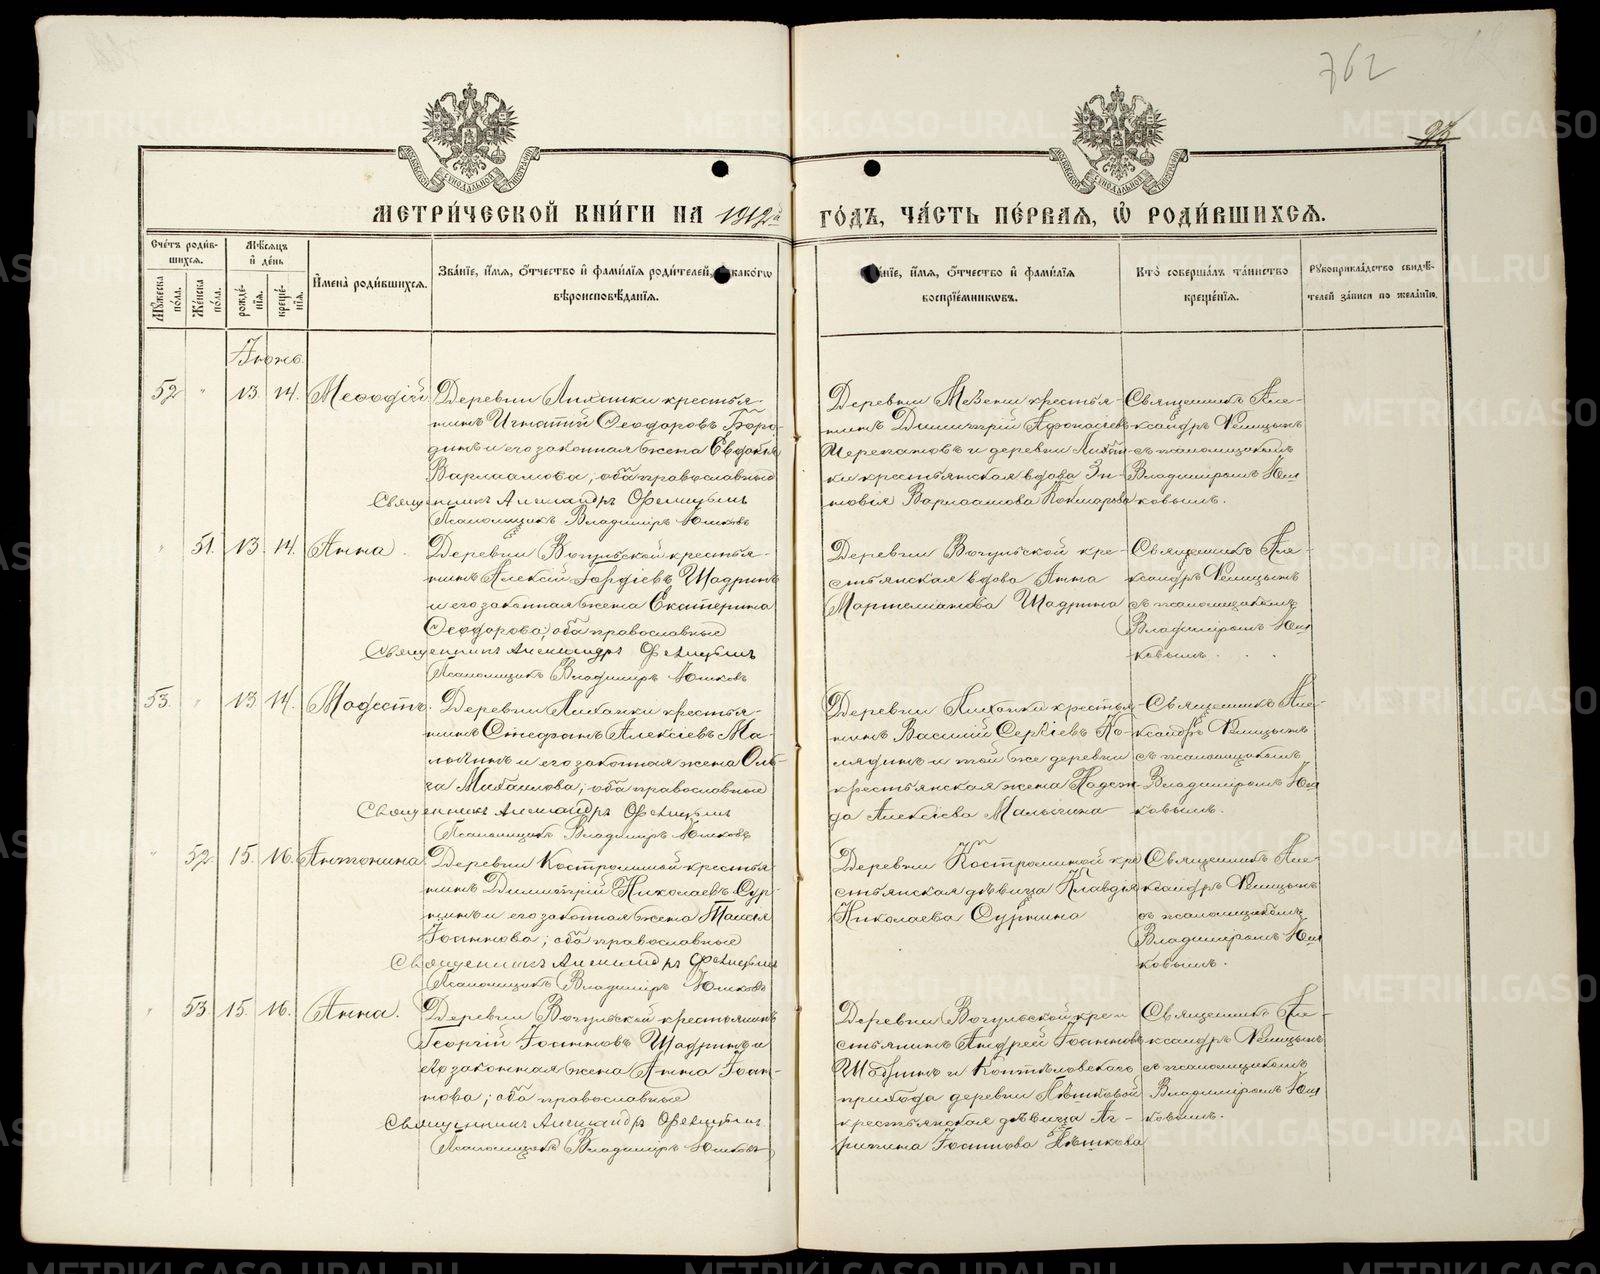 762
95
МЕТРИ́ЧЕСКОЙ КНИ́ГИ НА 1912й ГО́ДЪ, ЧА́СТЬ ПЕ́РВАЯ, Ѡ҆ РОДИ́ВШИХСЯ.
Сче́тъ роди́в-
шихся.
Мꙋ́жеска по́ла.
Же́нска по́ла.
Мѣ́сяцъ
и҆ де́нь
рожде́-
нїя.
креще́-
нїя.
И҆мена̀ роди́вшихся.
Зва́нїе, и҆́мя, ѻ҆́тчество и҆ фами́лїя роди́телей, и҆ како́гѡ
вѣроисповѣ́данїя.
Зва́нїе, и҆́мя, ѻ҆́тчество и҆ фами́лїя
воспрїе́мникѡвъ.
Кто̀ соверша́лъ та́инство
креще́нїя.
Рꙋкоприкла́дство свидѣ́-
телей за́писи по жела́нїю.
Іюнь.
52 " 13 14. Меѳодій
Деревни Лиханки крестья-
нинъ Игнатій Ѳеодоровъ Боро-
динъ и его законная жена Евдокія
Варлаамова; оба православные
Священникъ Александръ Фелицынъ
Псаломщикъ Владиміръ Юшковъ
Деревни Мезени крестья-
нинъ Димитрій Афонасіевъ
Черепановъ и деревни Лихан-
ки крестьянская вдова Зи-
новія Варлаамова
Священникъ Але-
ксандръ Фелицынъ
съ псаломщикомъ
Владиміромъ Юш
ковымъ.
" 51. 13. 14. Анна.
Деревни Вогульской крестья-
нинъ Алексій Гордіевъ Шадринъ
и его законная жена Екатерина
Ѳеодорова; оба православные
Священникъ Александръ Фелицынъ
Псаломщикъ Владиміръ Юшковъ
Деревни Вогульской кре-
стьянская вдова Анна
Мартеміанова Шадрина
Священникъ Але-
ксандръ Фелицынъ
съ псаломщикомъ
Владиміромъ Юш
ковымъ.
53. " 13. 14. Модестъ.
Деревни Лиханки крестья-
нинъ Стефанъ Алексіевъ Ма-
лыгинъ и его законная жена Оль-
га Михаилова; оба православные
Священникъ Александръ Фелицынъ
Псаломщикъ Владиміръ Юшковъ
Деревни Лиханки крестья-
нинъ Василій Сергіевъ Ко-
лядинъ и той же деревни
крестьянская жена Надеж-
да Алексіева Малыгина
Священникъ Але-
ксандръ Фелицынъ
съ псаломщикомъ
Владиміромъ Юш
ковымъ.
" 52. 15. 16. Антонина.
Деревни Костроминой крестья
нинъ Димитрій Николаевъ Сур-
нинъ и его законная жена Таисія
Іоаннова; оба православные
Священникъ Александръ Фелицынъ
Псаломщикъ Владиміръ Юшковъ
Деревни Костроминой кре
стьянская дѣвица Клавдія
Николаева Сурнина
Священникъ Але-
ксандръ Фелицынъ
съ псаломщикомъ
Владиміромъ Юш
ковымъ.
" 53. 15. 16. Анна.
Деревни Вогульской крестьянинъ
Георгій Іоанновъ Шадринъ и
его законная жена Анна Іоан-
нова; оба православные
Священникъ Александръ Фелицынъ
Псаломщикъ Владиміръ Юшковъ
Деревни Вогульской кре-
стьянинъ Андрей Іоанновъ
Шадринъ и Коптѣловскаго
прихода деревни Пѣшковой
крестьянская дѣвица Аг-
рипина Іоаннова Пѣшкова
Священникъ Але-
ксандръ Фелицынъ
съ псаломщикомъ
Владиміромъ Юш
ковымъ.
METRIKI.GASO-URAL.RU